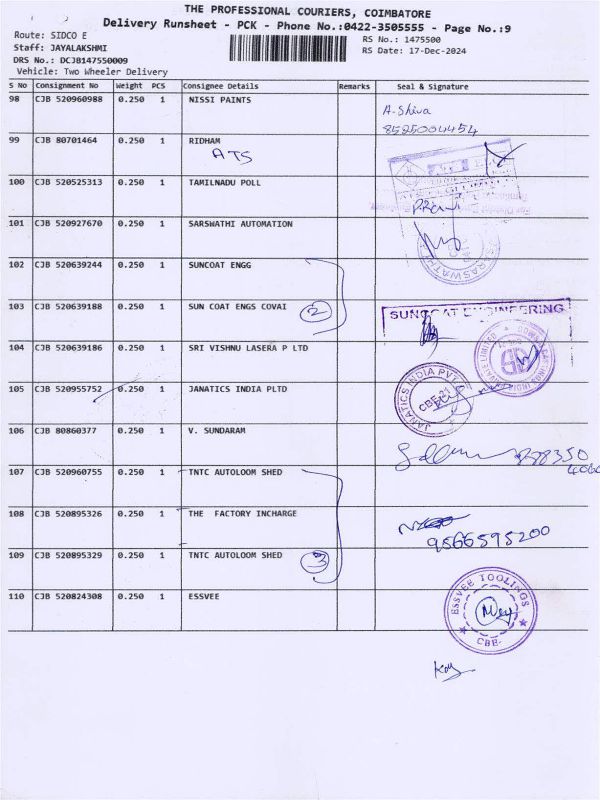 THE PROFESSIONAL COURIERS, COIMBATORE
Delivery Runsheet - PCK - Phone No.:0422-3505555 - Page No.:9
Route: SIDCO E
RS No.: 1475500
Staff: JAYALAKSHMI
RS Date: 17-Dec-2024
DRS No.: DCJB147550009
Vehicle: Two Wheeler Delivery
S No Consignment No Weight PCS Consignee Details Remarks Seal & Signature
98 CJB 520960988 0.250 1 NISSI PAINTS
A-Shiva
8525004454
99 CJB 80701464 0.250 1 RIDHAM
ATS
100 CJB 520525313 0.250 1 TAMILNADU POLL
101 CJB 520927670 0.250 1 SARSWATHI AUTOMATION
102 CJB 520639244 0.250 1 SUNCOAT ENGG
103 CJB 520639188 0.250 1 SUN COAT ENGS COVAI 2
SUNCOAT ENGINEERING
104 CJB 520639186 0.250 1 SRI VISHNU LASERA P LTD
105 CJB 520955752 0.250 1 JANATICS INDIA PLTD
JANATICS INDIA PVT
CBE-21
106 CJB 80860377 0.250 1 V. SUNDARAM
107 CJB 520960755 0.250 1 TNTC AUTOLOOM SHED
108 CJB 520895326 0.250 1 THE FACTORY INCHARGE
9566595200
109 CJB 520895329 0.250 1 TNTC AUTOLOOM SHED 3
110 CJB 520824308 0.250 1 ESSVEE
ESSVEE TOOLINGS
CBE-